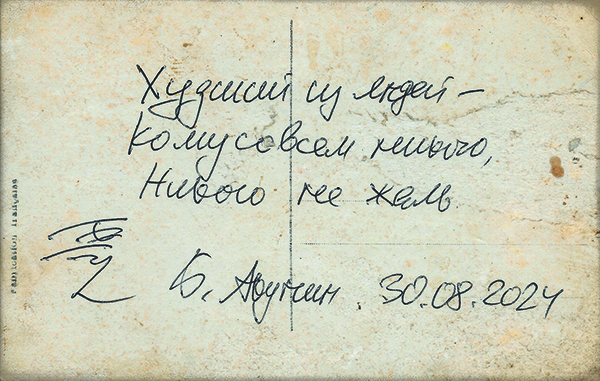 Худший из людей –
Кому совсем никого,
Никого не жаль
Б. Акунин 30.08.2024
Fabrication française